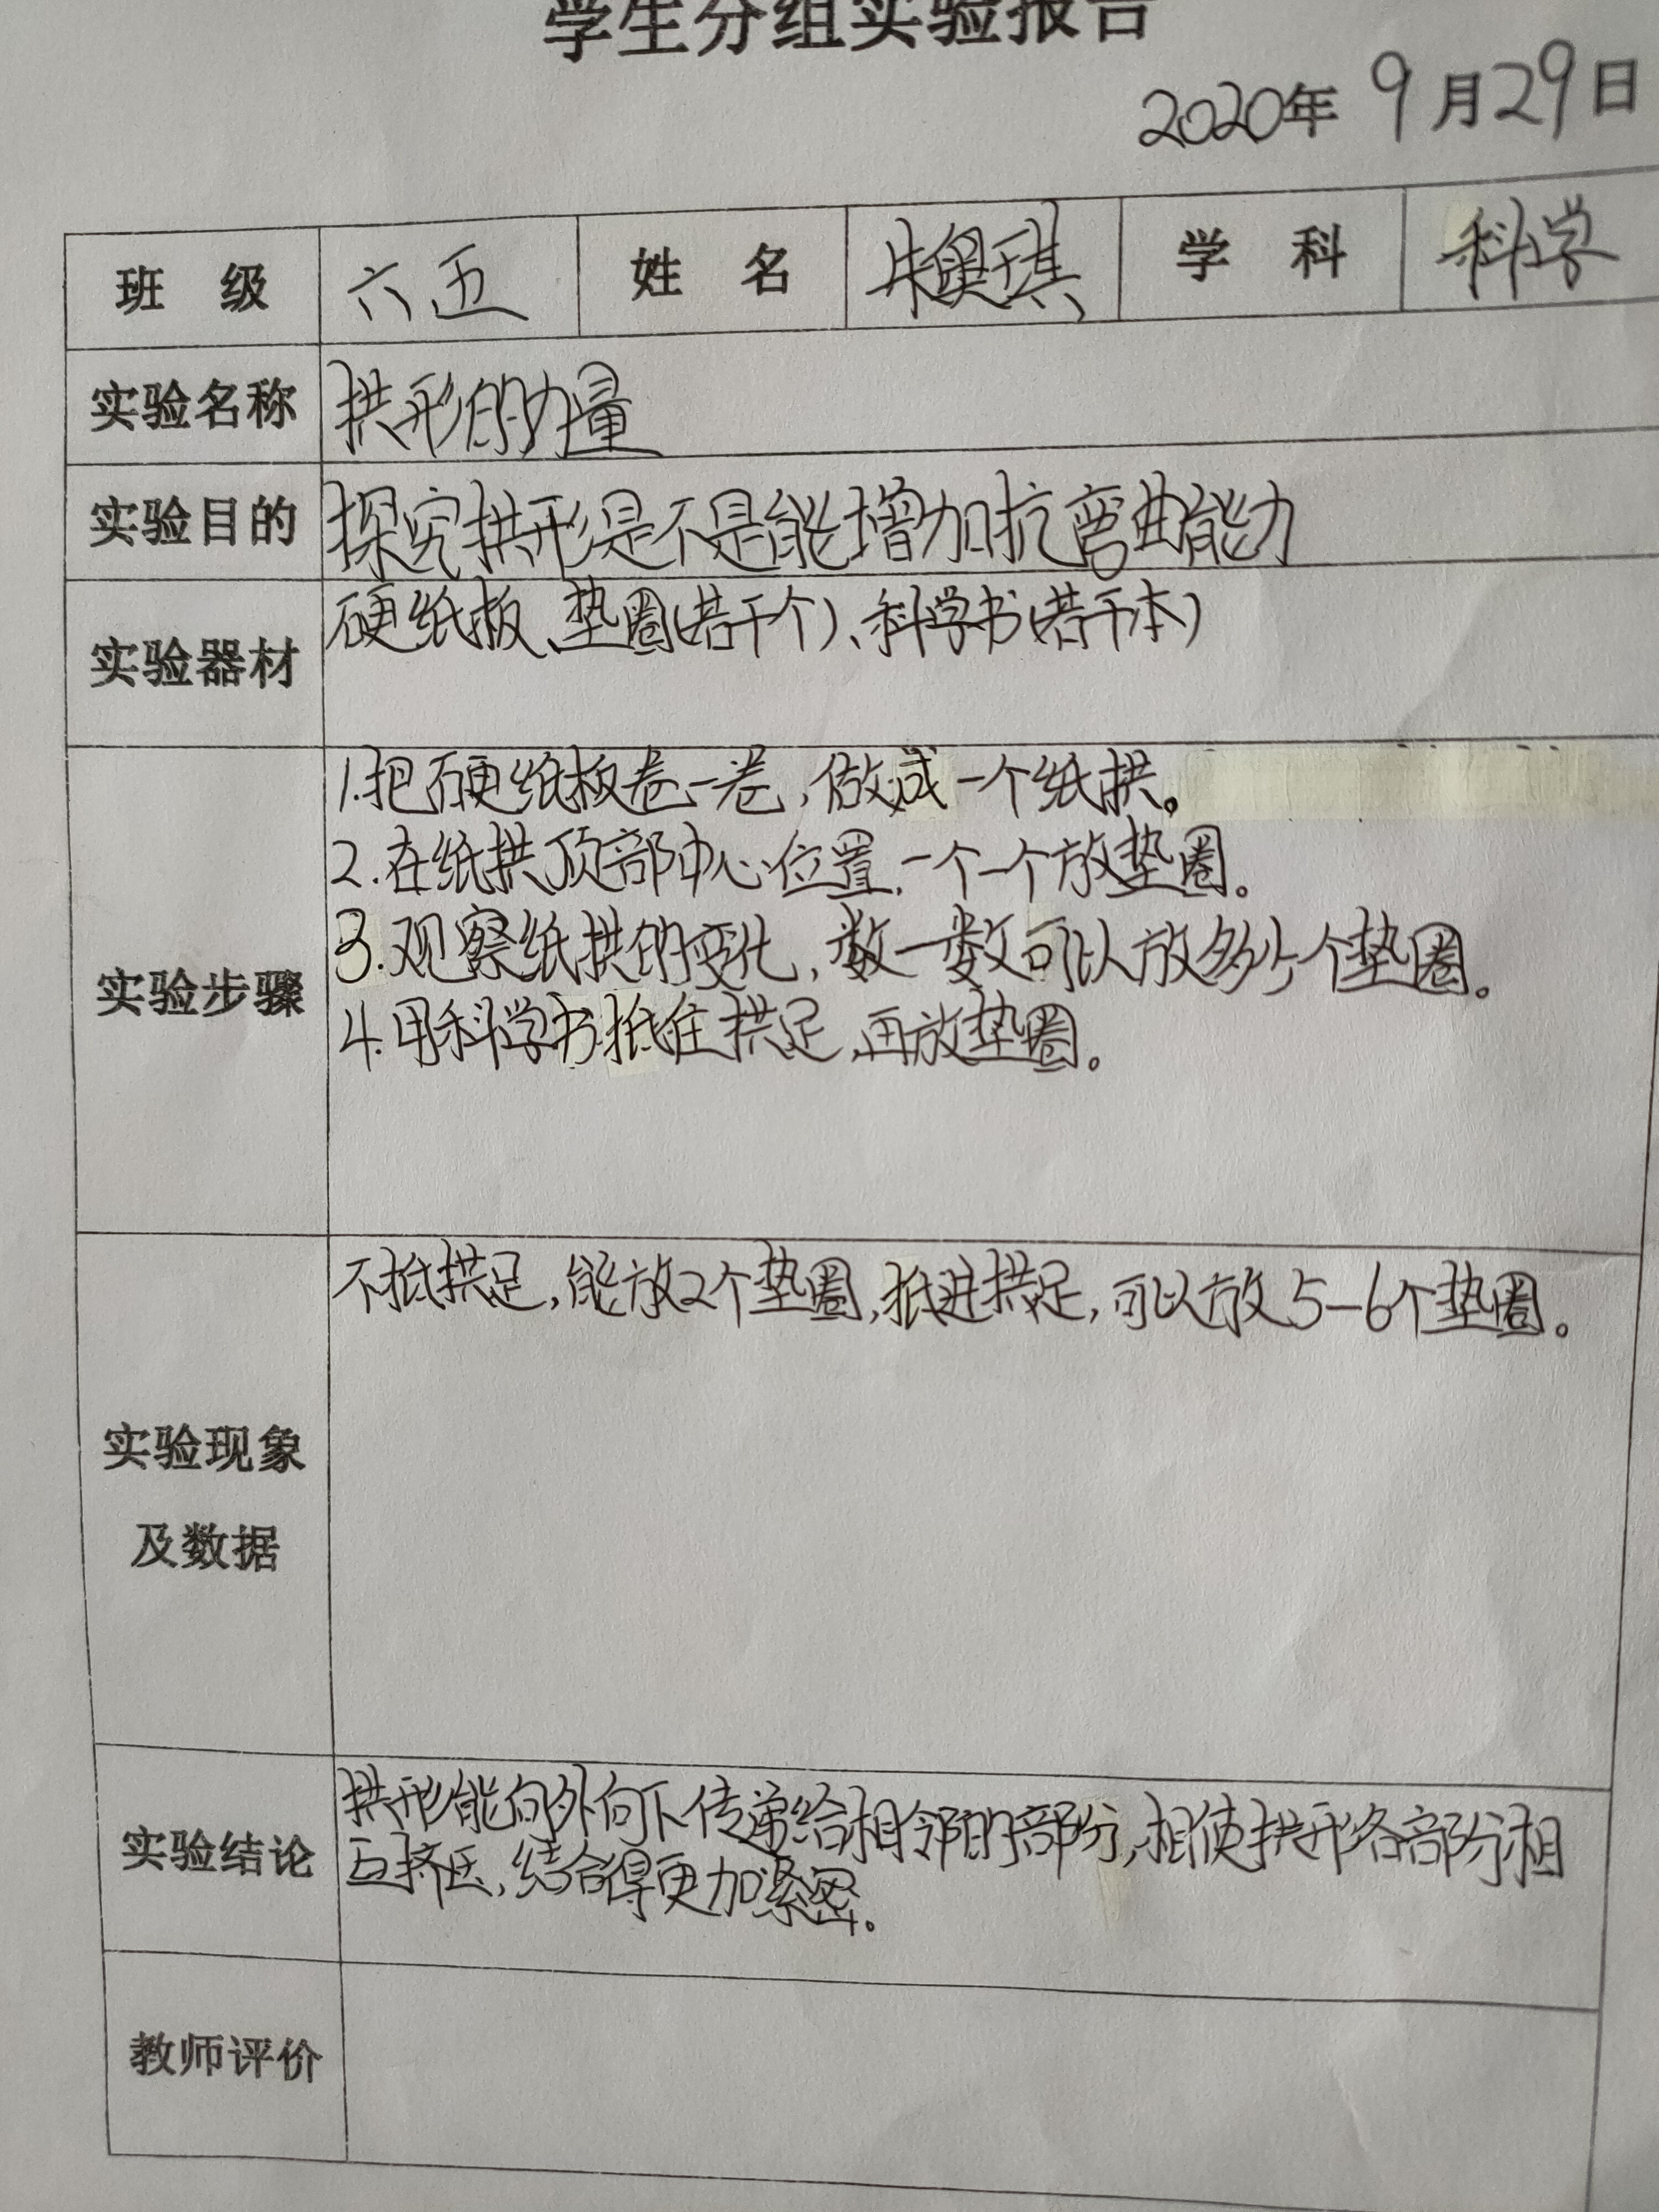 学生分组实验报告
2020年 9月29日
班 级 六五 姓 名 朱奥琪 学 科 科学
实验名称 拱形的力量
实验目的 探究拱形是不是能增加抗弯曲能力
实验器材 硬纸板、垫圈(若干个)、科学书(若干本)
实验步骤
1.把硬纸板卷一卷,做成一个纸拱。
2.在纸拱顶部中心位置,一个一个放垫圈。
3.观察纸拱的变化,数一数可以放多少个垫圈。
4.用科学书抵住拱足,再放垫圈。
实验现象
及数据
不抵拱足,能放2个垫圈,抵进拱足,可以放5-6个垫圈。
实验结论
拱形能向外向下传递给相邻的部分,相使拱形各部分相
互挤压,结合得更加紧密。
教师评价